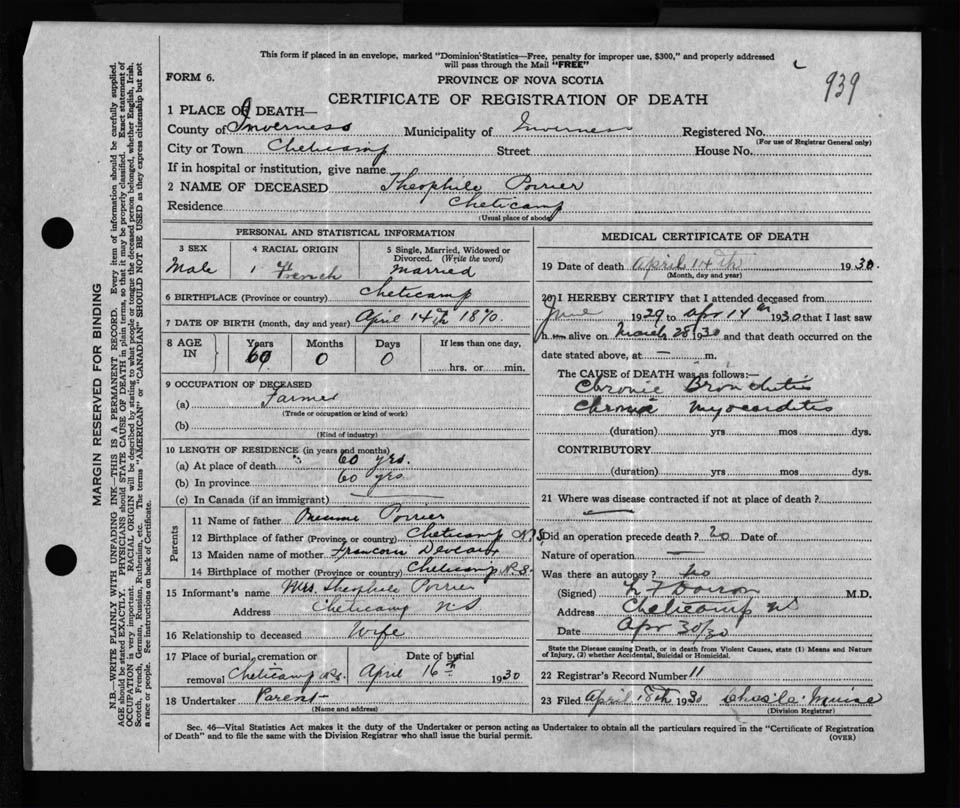 This form if placed in an envelope, marked "Dominion Statistics—Free, penalty for improper use, $300," and properly addressed
will pass through the Mail "FREE"
FORM 6.
PROVINCE OF NOVA SCOTIA
939
CERTIFICATE OF REGISTRATION OF DEATH
1 PLACE OF DEATH—
County of Inverness Municipality of Inverness Registered No.
(For use of Registrar General only)
City or Town Cheticamp Street House No.
If in hospital or institution, give name
2 NAME OF DECEASED Theophile Poirier
Residence Cheticamp
(Usual place of abode)
PERSONAL AND STATISTICAL INFORMATION
3 SEX 4 RACIAL ORIGIN 5 Single, Married, Widowed or
Divorced. (Write the word)
Male French Married
6 BIRTHPLACE (Province or country) Cheticamp
7 DATE OF BIRTH (month, day and year) April 14th 1870.
8 AGE IN Years Months Days If less than one day,
60 0 0 hrs. or min.
9 OCCUPATION OF DECEASED
(a) Farmer
(Trade or occupation or kind of work)
(b)
(Kind of industry)
10 LENGTH OF RESIDENCE (in years and months)
(a) At place of death 60 yrs.
(b) In province 60 yrs
(c) In Canada (if an immigrant)
Parents
11 Name of father Poirier
12 Birthplace of father (Province or country) Cheticamp N.S.
13 Maiden name of mother Deveaux
14 Birthplace of mother (Province or country) Cheticamp N.S.
15 Informant's name Mrs. Theophile Poirier
Address Cheticamp NS
16 Relationship to deceased Wife
17 Place of burial, cremation or Date of burial
removal Cheticamp N.S. April 16th 1930
18 Undertaker Parent
(Name and address)
MEDICAL CERTIFICATE OF DEATH
19 Date of death April 14th 1930.
(Month, day and year)
20 I HEREBY CERTIFY that I attended deceased from
June 1929 to Apr 14th 1930 that I last saw
h alive on March 28 1930 and that death occurred on the
date stated above, at — m.
The CAUSE of DEATH was as follows:—
Chronic Bronchitis
Chronic Myocarditis
(duration) yrs mos dys.
CONTRIBUTORY
(duration) yrs mos dys.
21 Where was disease contracted if not at place of death?
Did an operation precede death? No Date of
Nature of operation —
Was there an autopsy? No
(Signed) M.D.
Address Cheticamp NS
Date Apr 30/30
State the Disease causing Death, or in death from Violent Causes, state (1) Means and Nature
of Injury, (2) whether Accidental, Suicidal or Homicidal.
22 Registrar's Record Number 11
23 Filed April 18th 1930
(Division Registrar)
Sec. 46—Vital Statistics Act makes it the duty of the Undertaker or person acting as Undertaker to obtain all the particulars required in the "Certificate of Registration
of Death" and to file the same with the Division Registrar who shall issue the burial permit. (OVER)
MARGIN RESERVED FOR BINDING
N.B.—WRITE PLAINLY WITH UNFADING INK—THIS IS A PERMANENT RECORD. Every item of information should be carefully supplied.
AGE should be stated EXACTLY. PHYSICIANS should STATE CAUSE OF DEATH in plain terms, so that it may be properly classified. Exact statement of
OCCUPATION is very important. RACIAL ORIGIN will be described by stating to what people or tongue the deceased person belonged, whether English, Irish,
Scotch, French, German, Russian, Ruthenian, etc. The terms "AMERICAN" or "CANADIAN" SHOULD NOT BE USED as they express citizenship but not
a race or people. See instructions on back of Certificate.